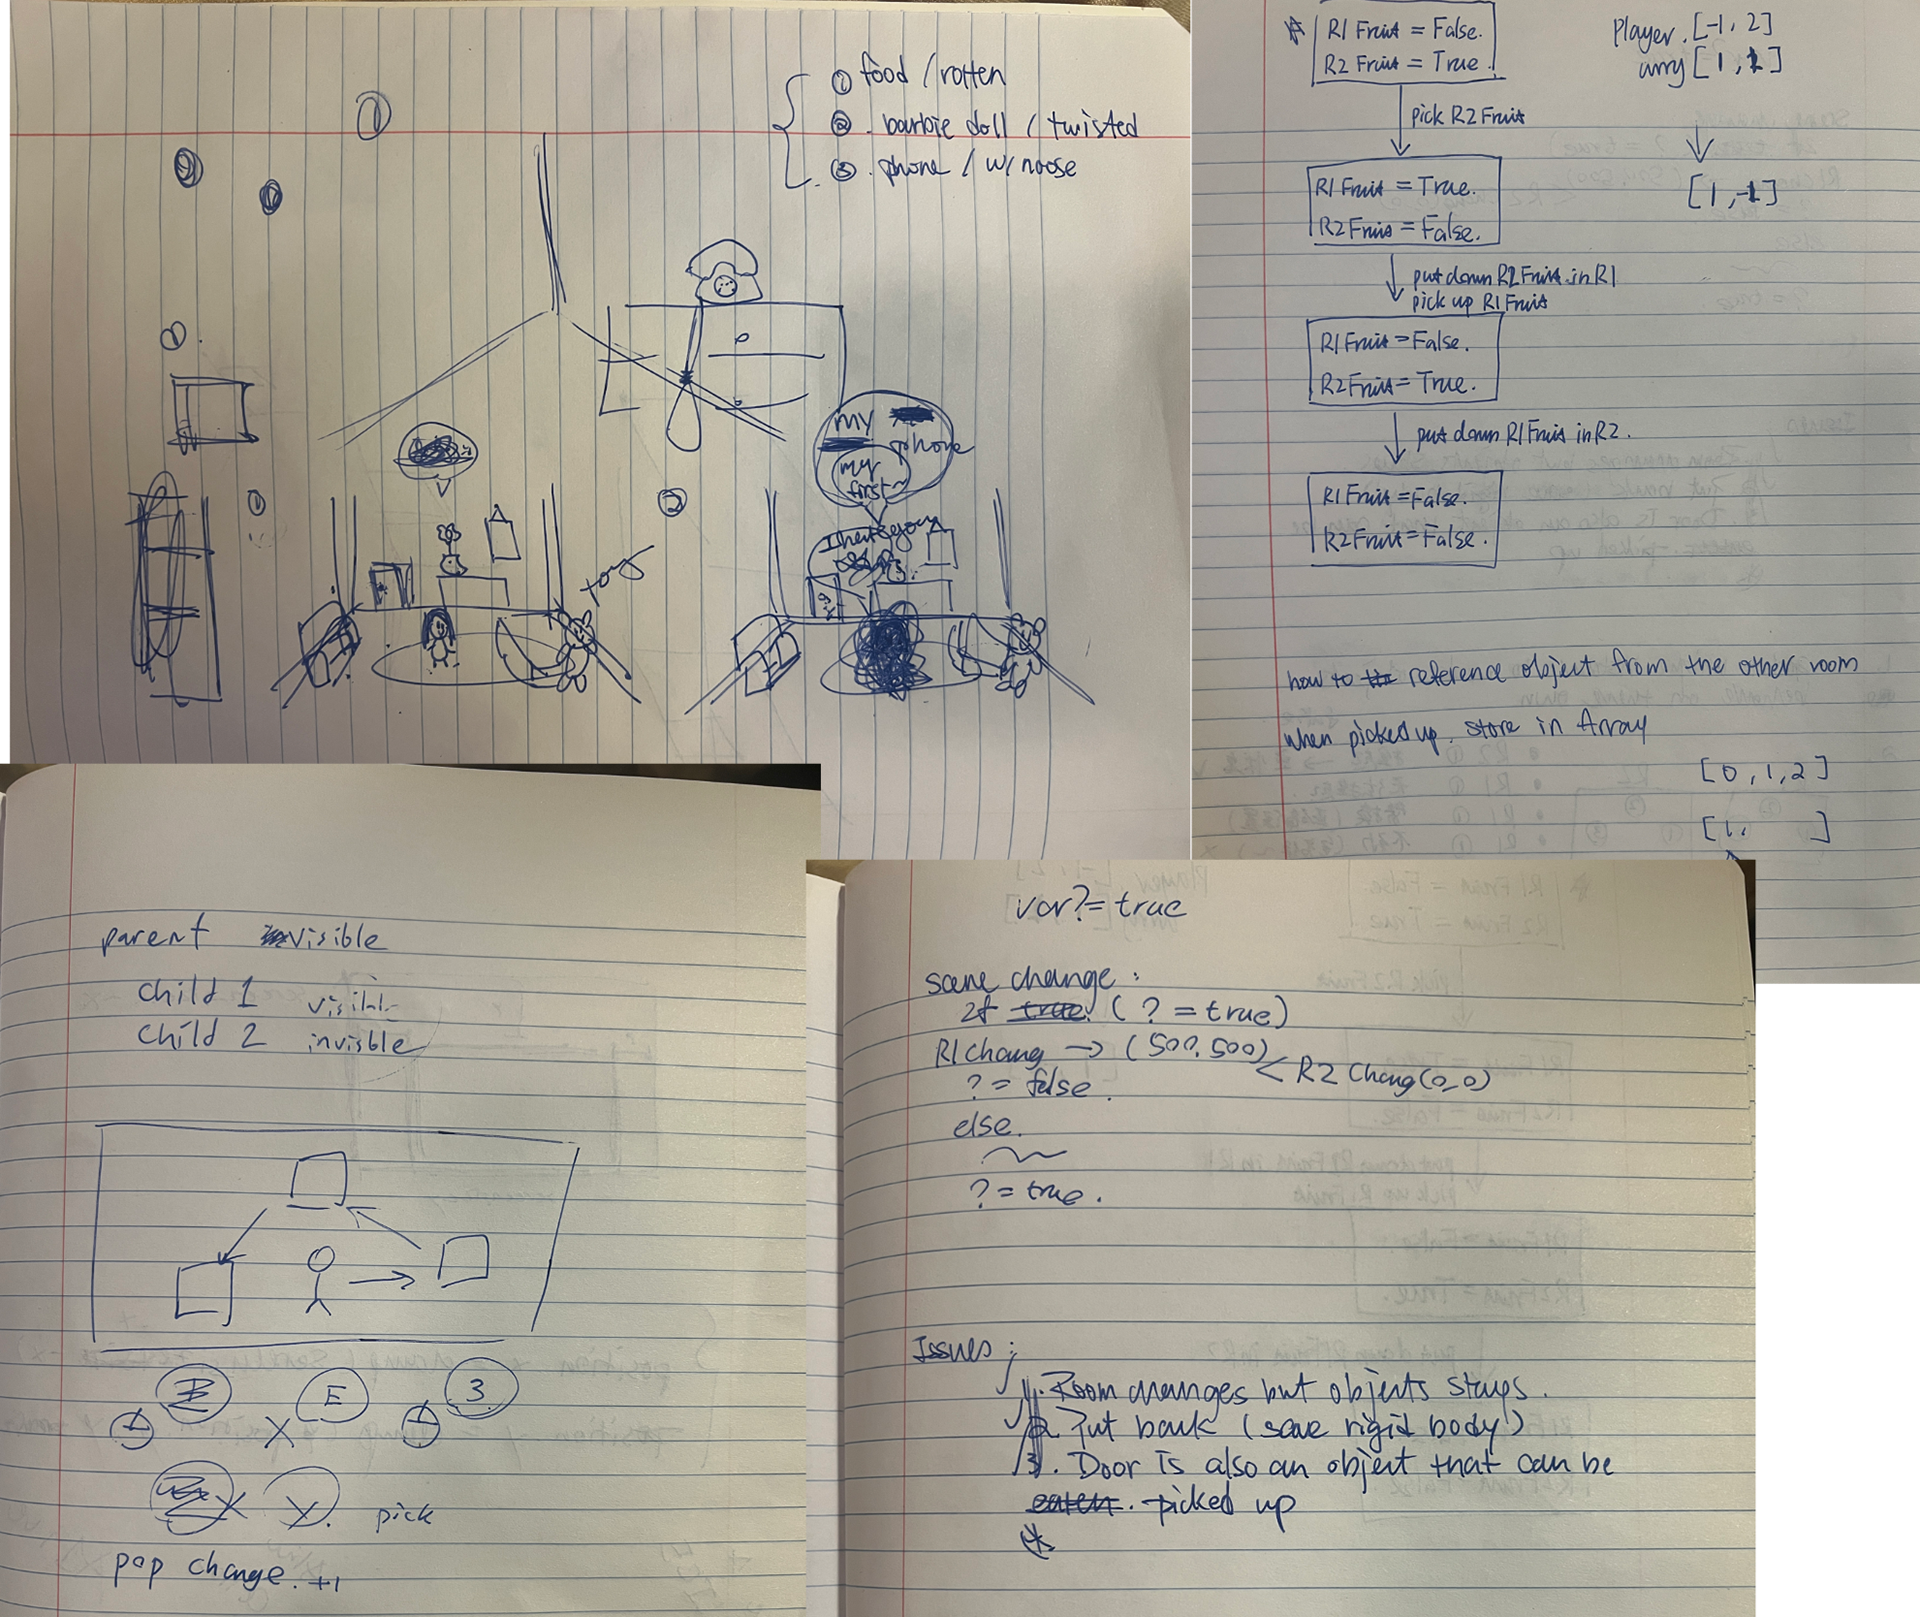 ① food / rotten
② . barbie doll / twisted
③ . phone / w/ noose
①
②
my
phone
my
first~
①
②
I hate you
toy
R1 Fruit = False.
R2 Fruit = True.
Player. [-1, 2]
arry [1, 1]
pick R2 Fruit
R1 Fruit = True.
R2 Fruit = False.
[1, -1]
put down R2 Fruit in R1
pick up R1 Fruit
R1 Fruit = False.
R2 Fruit = True.
put down R1 Fruit in R2.
R1 Fruit = False.
R2 Fruit = False.
how to reference object from the other room
when picked up. store in Array
[0, 1, 2]
[1, ]
parent visible
child 1 visible
child 2 invisble
E
3
pick
pop change. +1
var ? = true
scene change :
If (? = true)
R1 Chang → (500, 500)
R2 Chang (0,0)
? = false.
else.
? = true.
Issues :
1. Room changes but objects stays.
2. Put back (save rigid body)
3. Door is also an object that can be
picked up